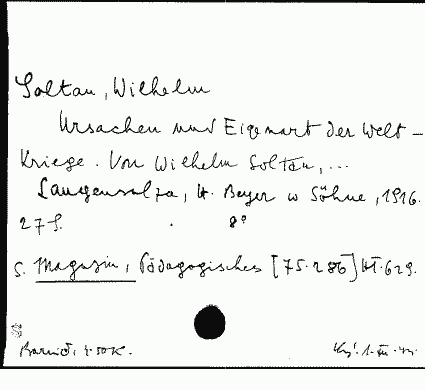 Soltau, Wilhelm
Ursachen und Eigenart der Welt-
Kriege. Von Wilhelm Soltau, ...
Langensalza, H. Beyer u Söhne, 1916.
27 S. 8°
S. Magazin, Pädagogisches [75.286] Ht. 629.